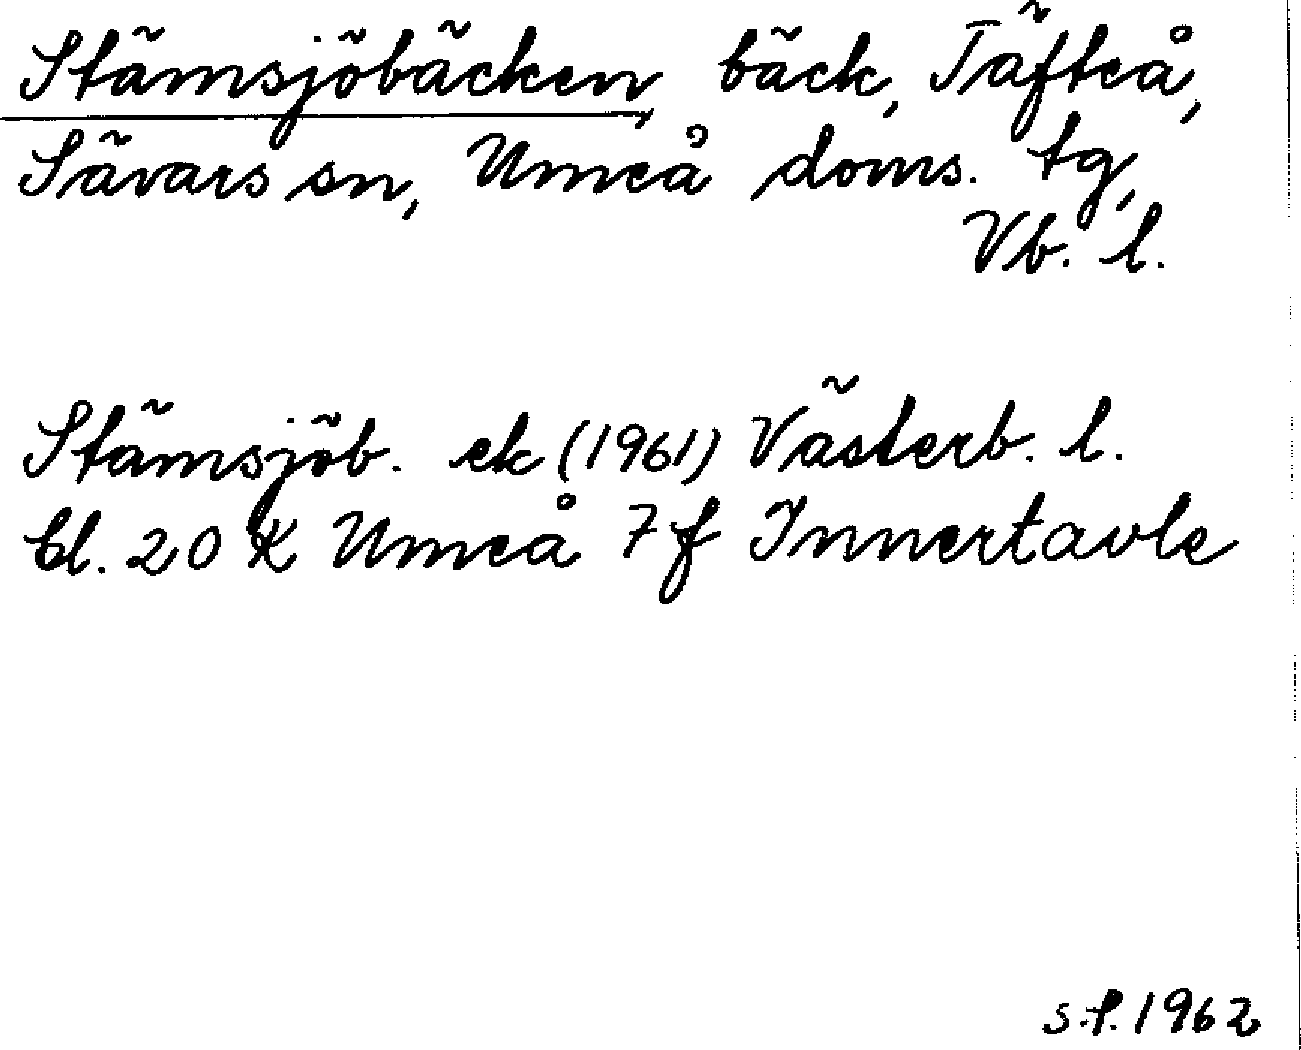 Stämsjöbäcken, bäck, Täfteå,
Sävars sn, Umeå doms. tg,
Vb. l.
Stämsjöb. ek (1961) Västerb. l.
bl. 20 K Umeå 7 f Innertavle
s.f. 1962